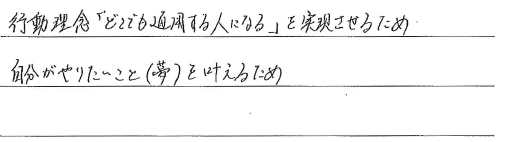 行動理念「どこでも通用する人になる」を実現させるため
自分がやりたいこと(夢)を叶えるため